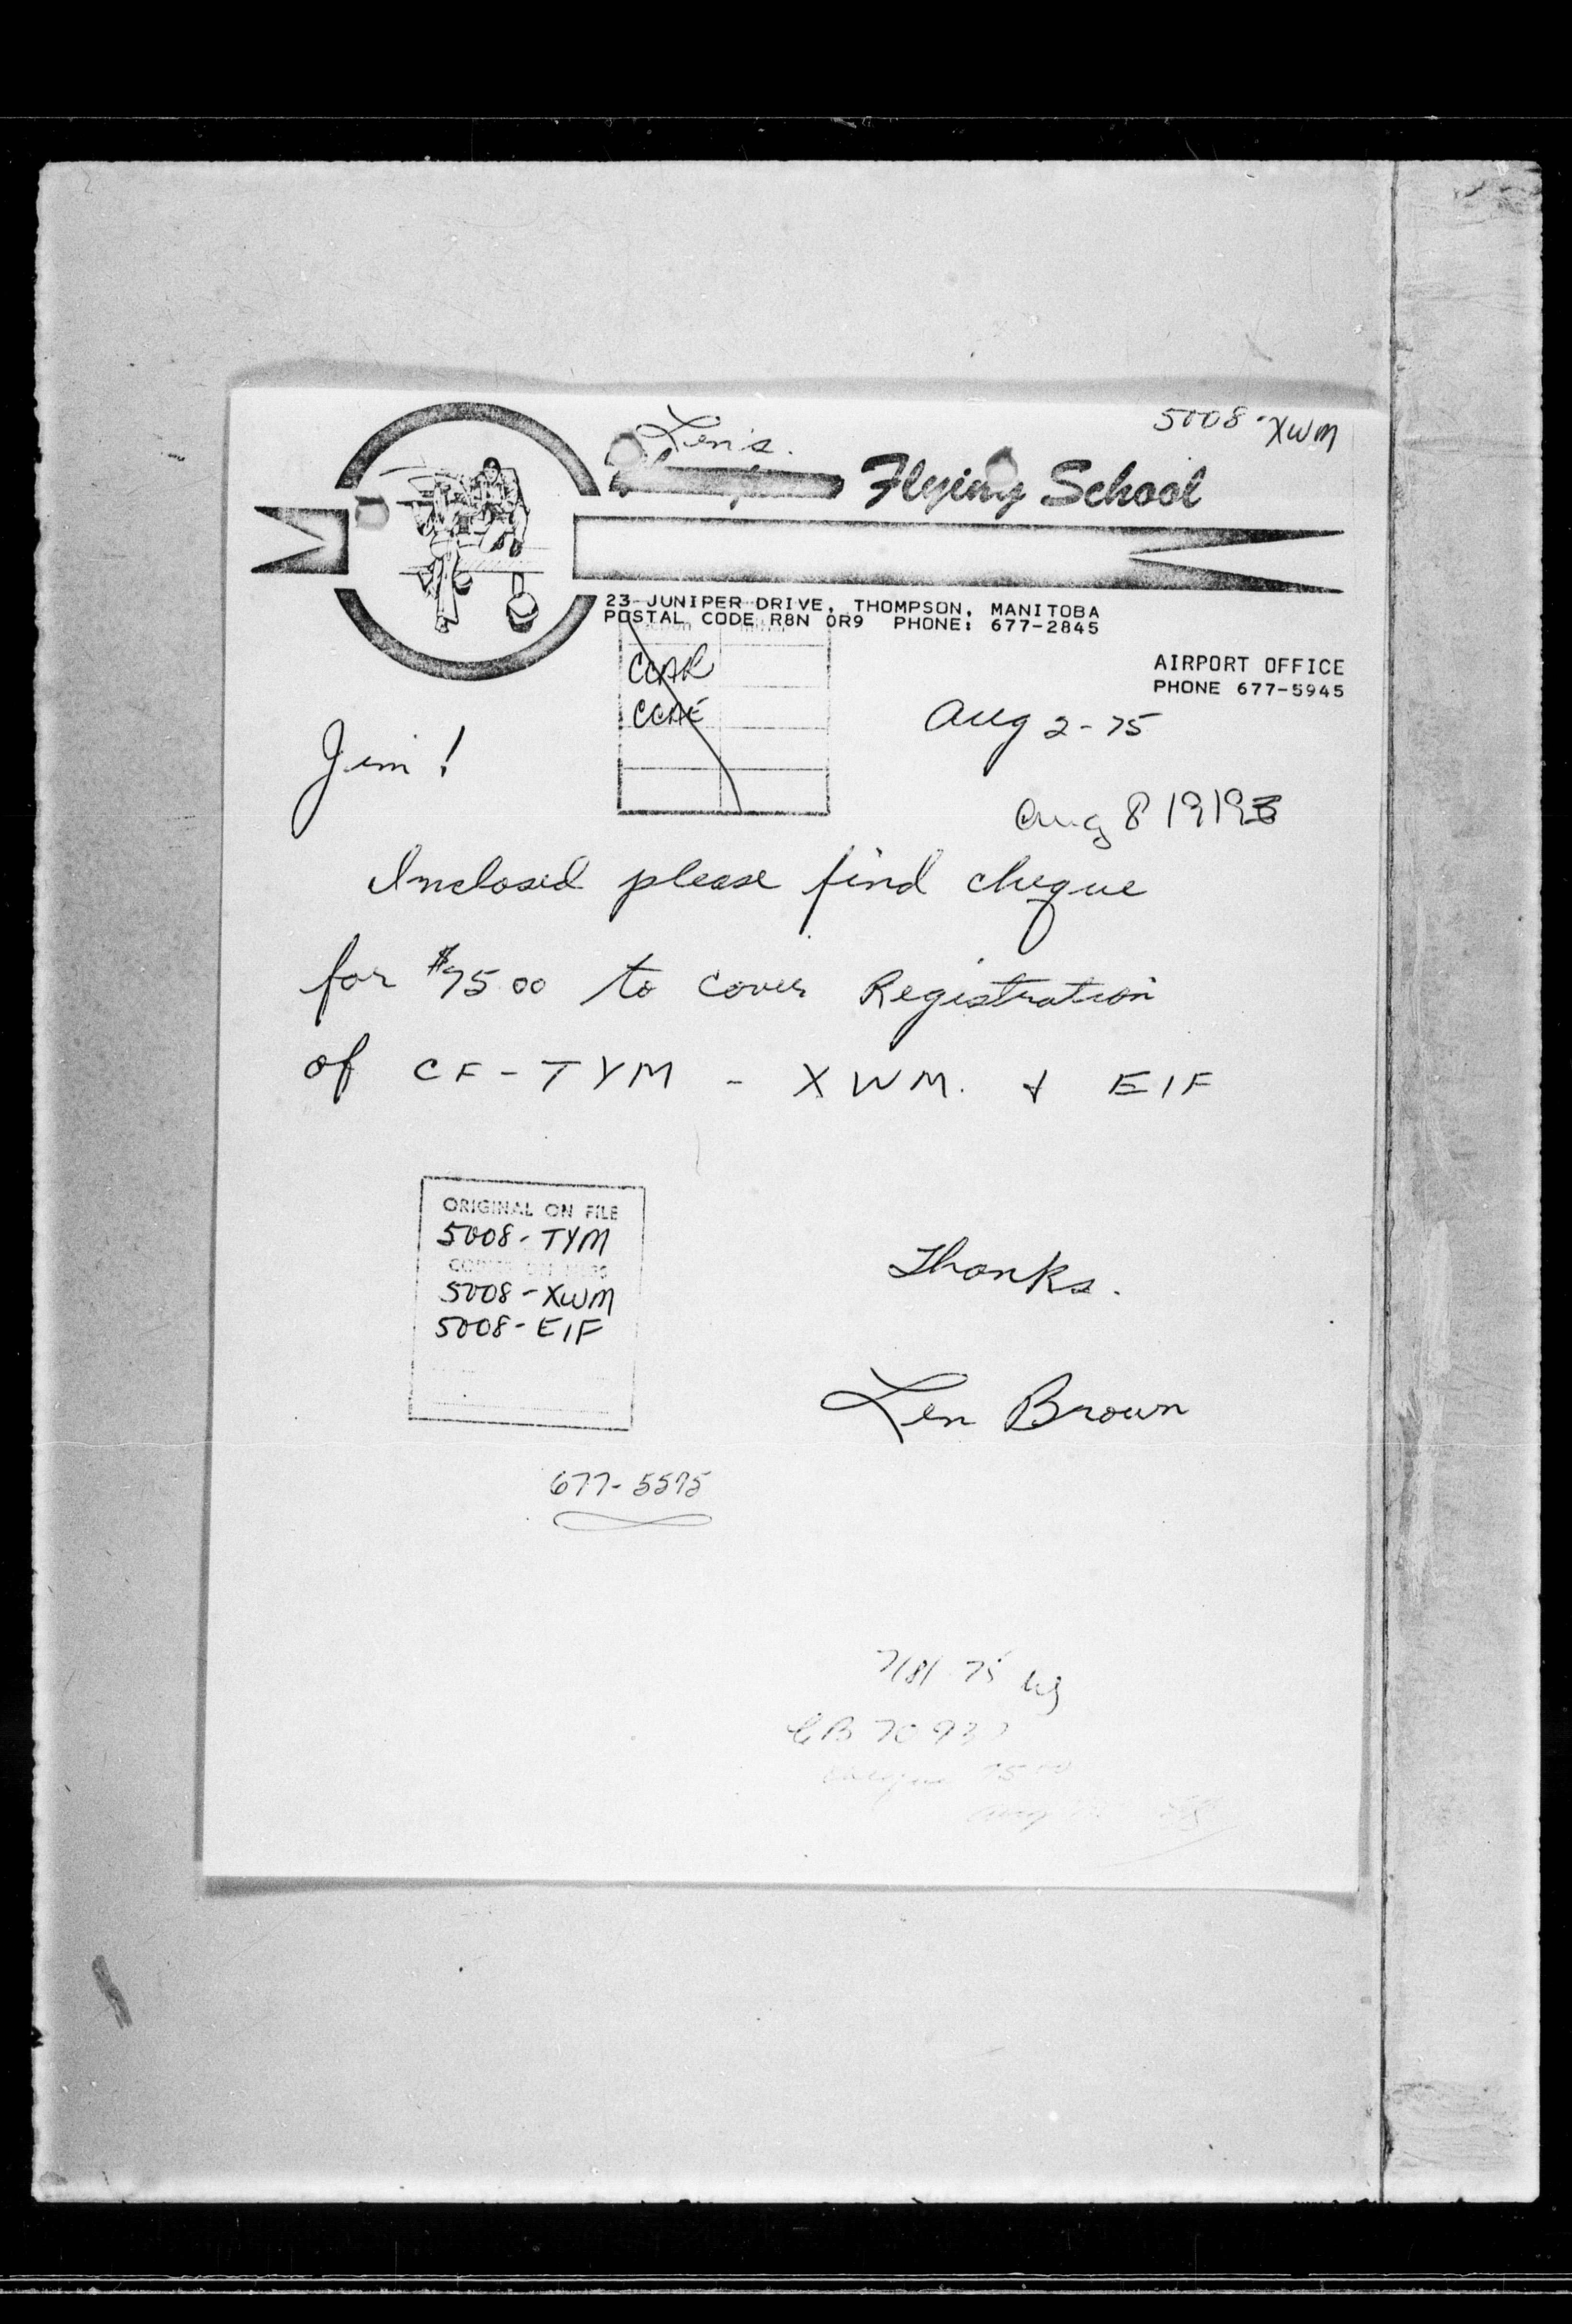 5008-XWM
Len's. Flying School
23 JUNIPER DRIVE, THOMPSON, MANITOBA
POSTAL CODE R8N 0R9 PHONE: 677-2845
AIRPORT OFFICE
PHONE 677-5945
CCAR
CCAE
Aug 2-75
Jim!
Aug 8
Inclosed please find cheque
for $75 00 to cover Registration
of CF-TYM - XWM. & EIF
ORIGINAL ON FILE
5008-TYM
5008-XWM
5008-EIF
Thanks.
Len Brown
677-5575
7/8/75